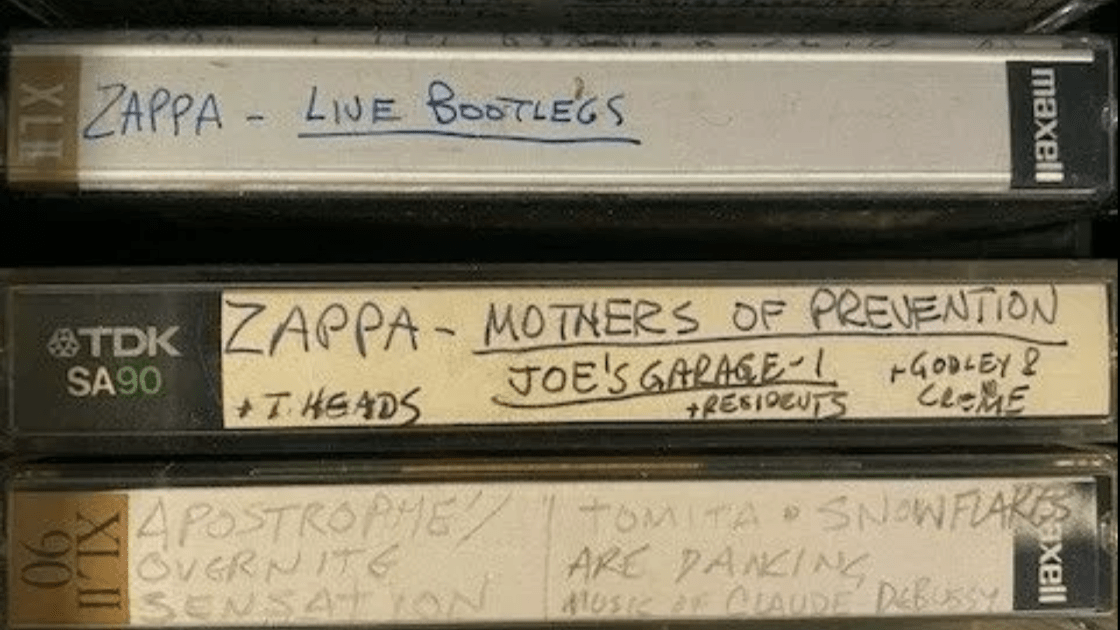 XLII
ZAPPA - LIVE BOOTLEGS
maxell
TDK
SA90
ZAPPA - MOTHERS OF PREVENTION
JOE'S GARAGE-1
+ GODLEY &
CREME
+ T. HEADS
+RESIDENTS
XLII
90
APOSTROPHE'/
OVERNITE
SENSATION
TOMITA • SNOWFLAKES
ARE DANCING
MUSIC OF CLAUDE DEBUSSY
maxell